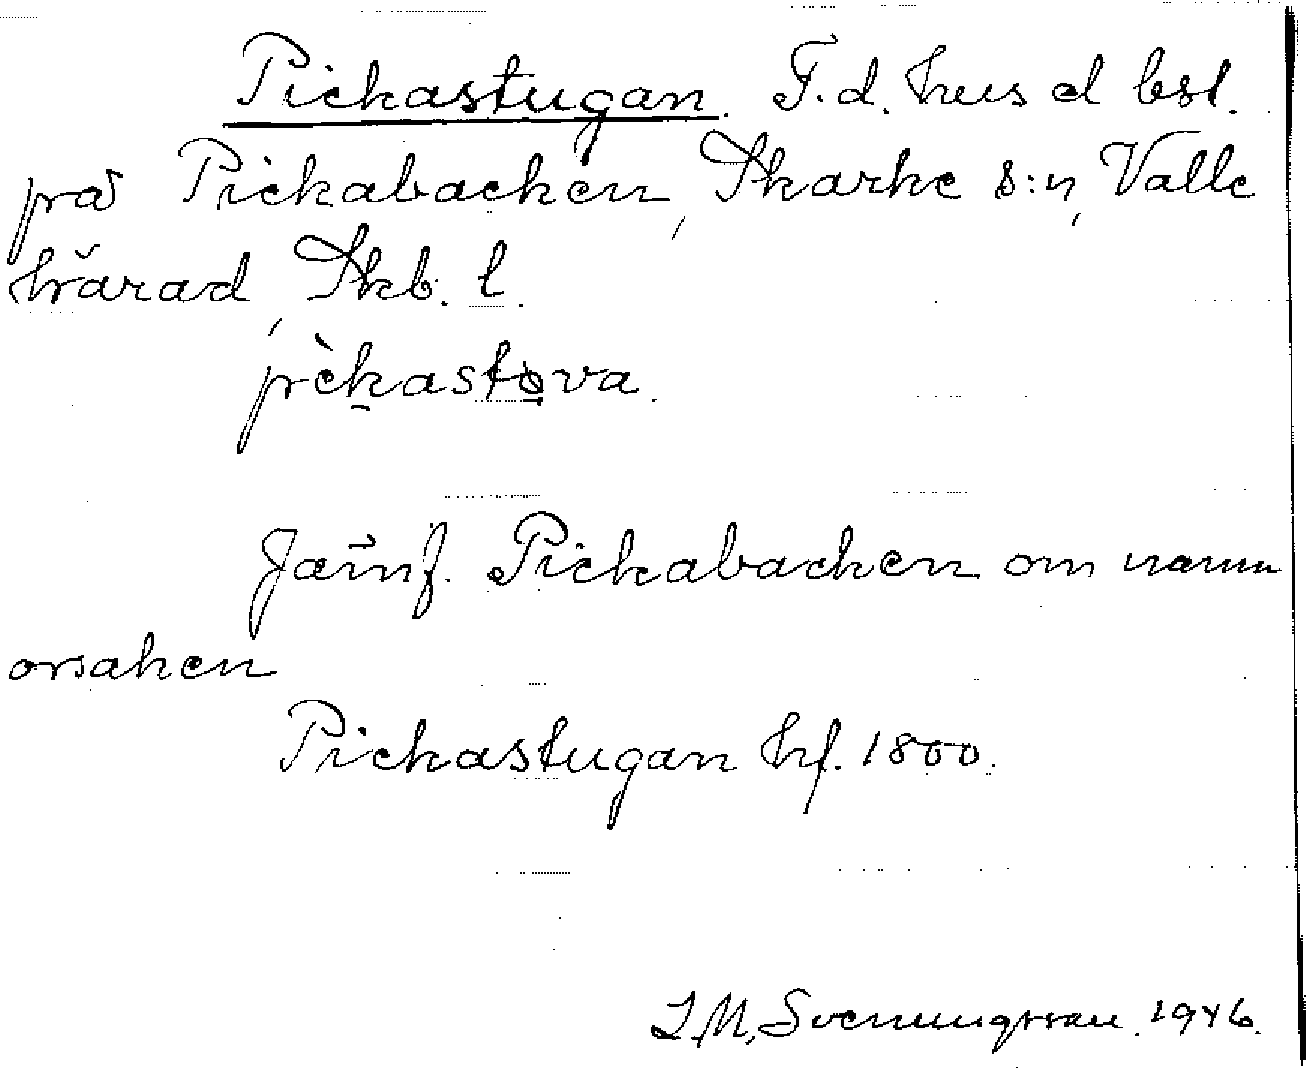 Pickastugan. F.d. hus el bst.
på Pickabacken, Skarke s:n, Valle
härad, Skb. l.
pèkastova.
Jämf. Pickabacken om namn
orsaken
Pickastugan hf. 1800.
I.M. Svenungsson. 1946.